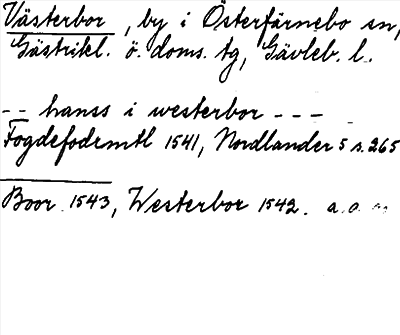 Västerbor, by i Österfärnebo sn,
Gästrikl. ö. doms. tg, Gävleb. l.
-- hanss i westerbor ---
Fogdefodrmtl 1541, Nordlander 5 s. 265
Boor 1543, Westerbor 1542. a.a.